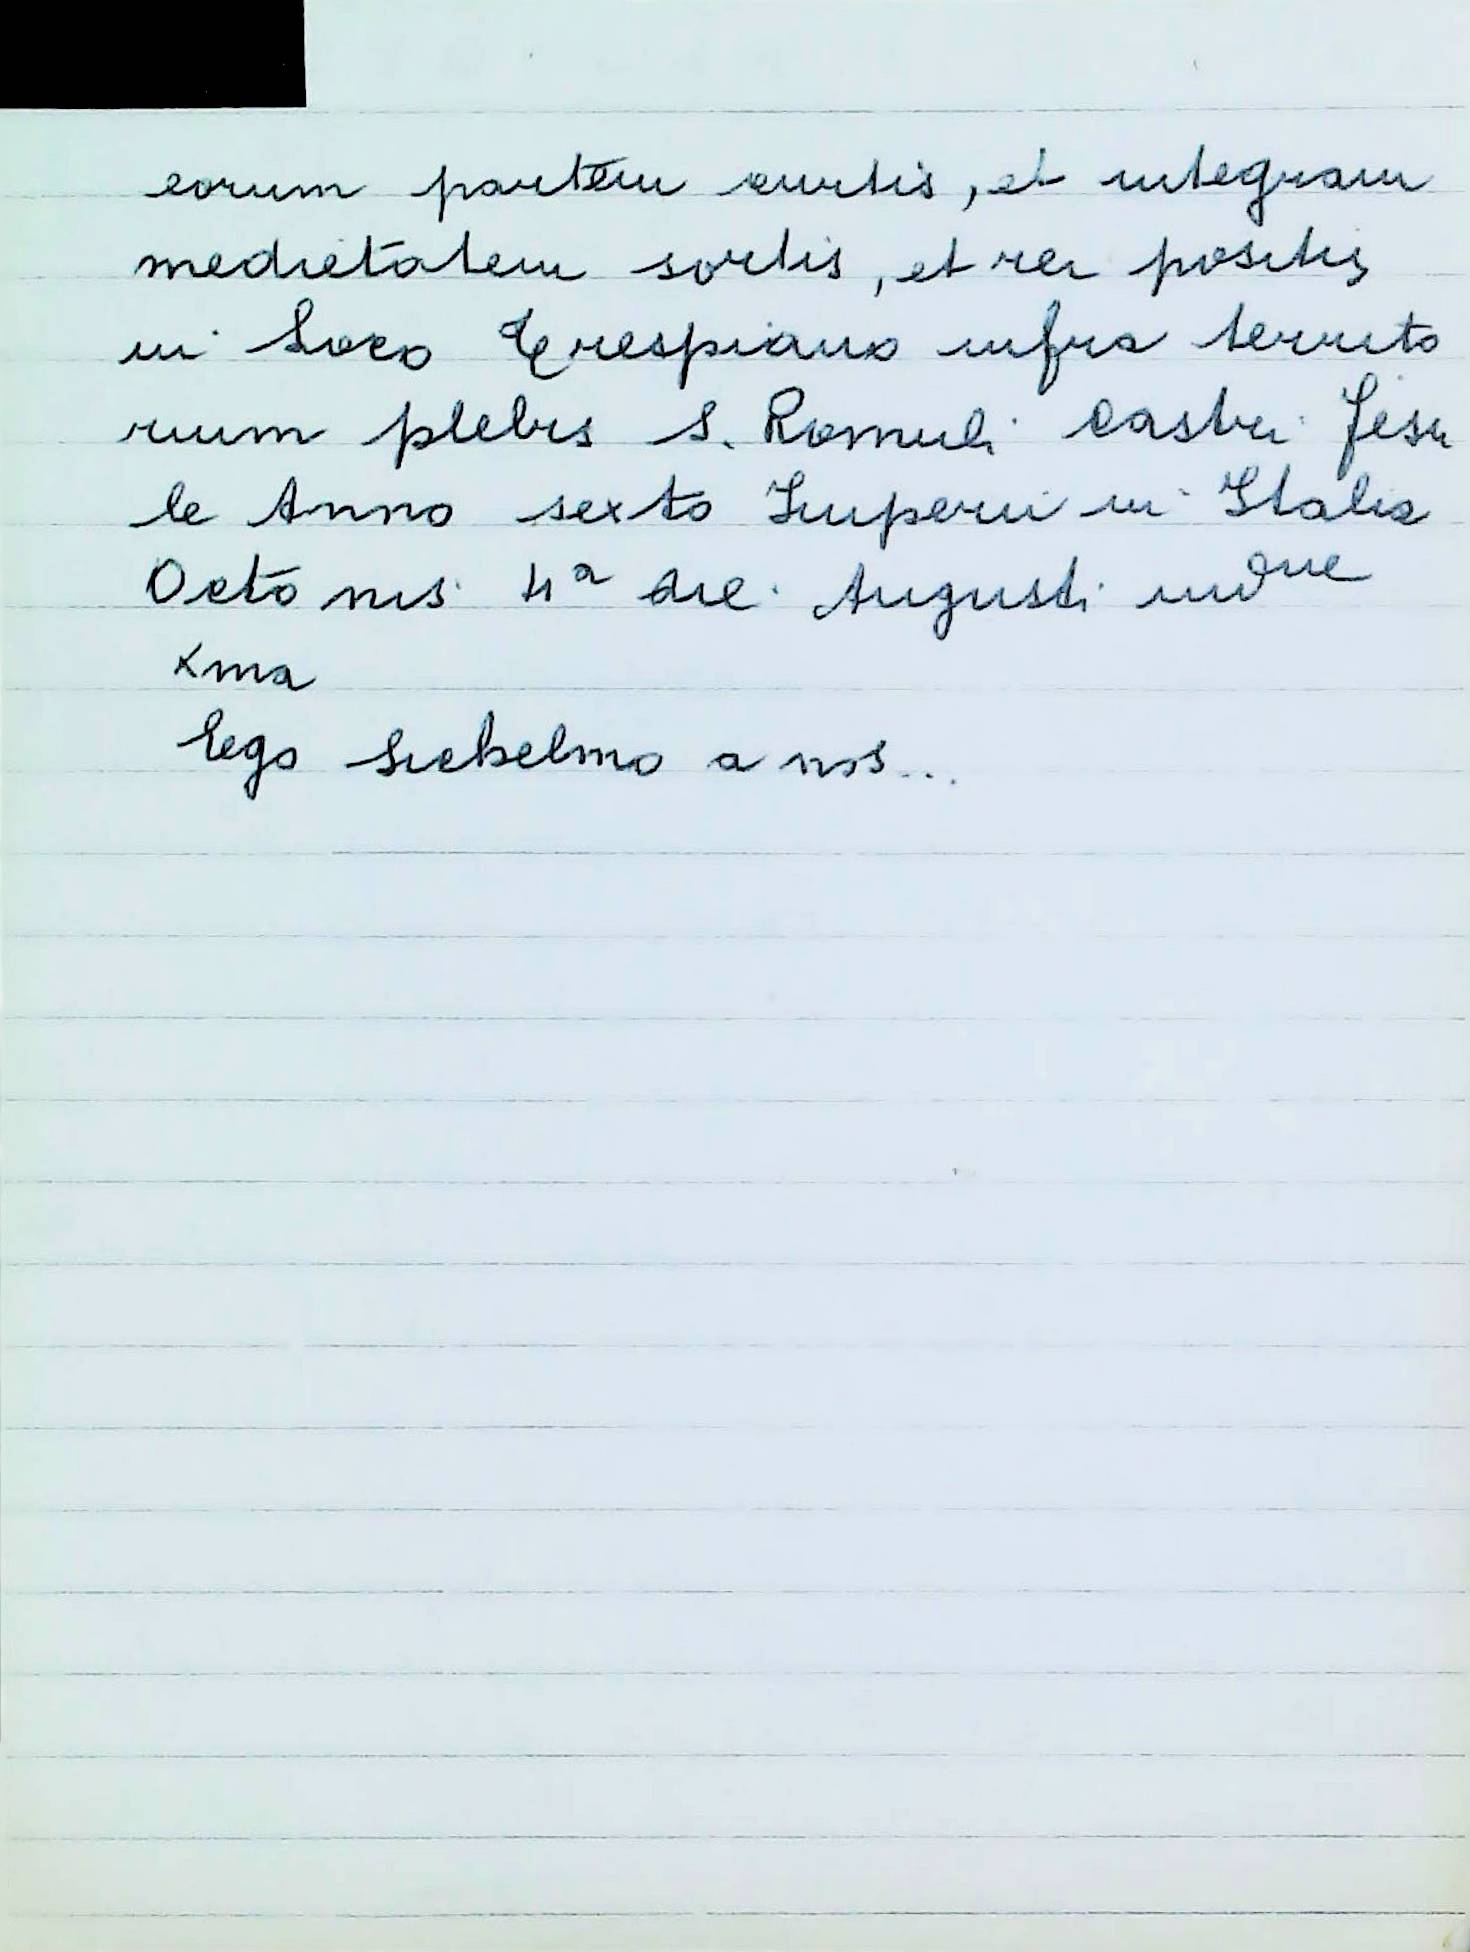 eorum partem curtis, et integram
medietatem sortis, et rei positis
in Loco Trespiano infra territo
rium plebis S. Romuli Castri Fesu
le Anno sexto Imperii in Italia
Octo nis 4ª die Augusti indne
xma
Ego Sichelmo a nos...